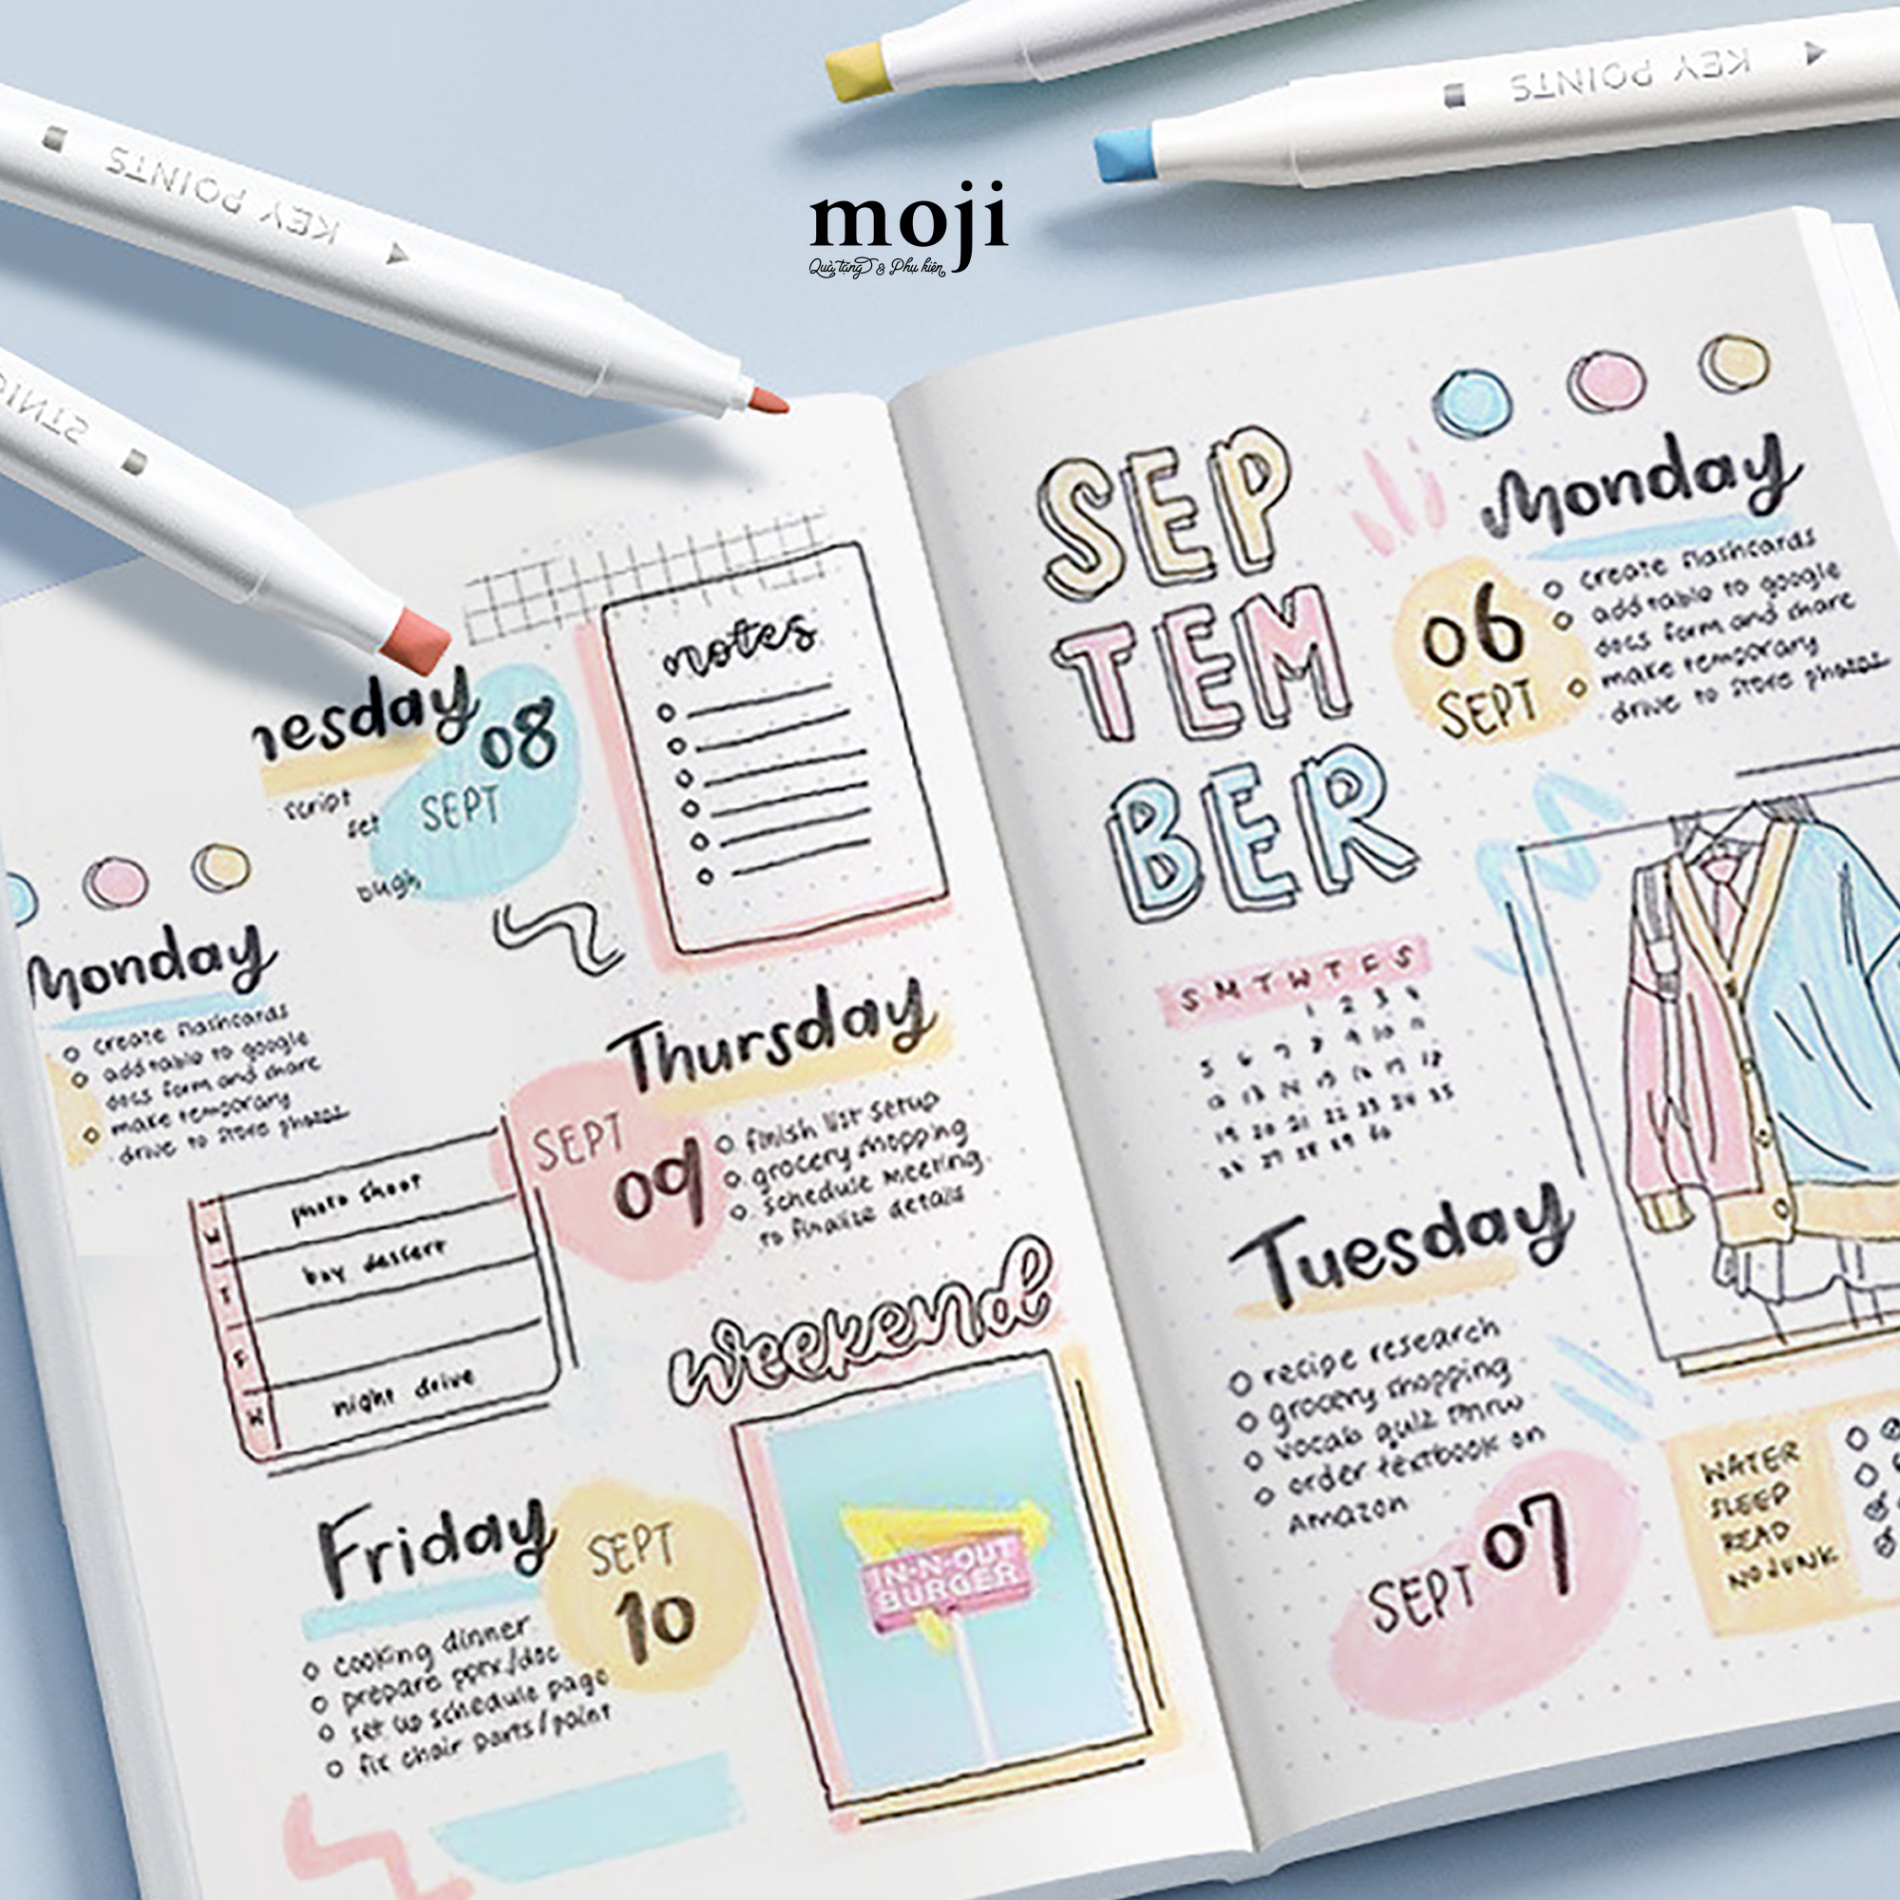 KEY POINTS
KEY POINTS
moji
Quà tặng & Phụ kiện
nesday
08
SEPT
script
set
ough
notes
Monday
create flashcards
add table to google
docs form and share
make temporary
drive to store photos
Thursday
SEPT
09
finish list setup
grocery shopping
schedule meeting
to finalize details
photo shoot
buy dessert
night drive
weekend
IN-N-OUT
BURGER
Friday
SEPT
10
cooking dinner
prepare pprx./doc
set up schedule page
fix chair parts/paint
SEP
TEM
BER
Monday
06
SEPT
create flashcards
add table to google
docs form and share
make temporary
drive to store photos
S M T W T F S
1 2 3 4
5 6 7 8 9 10 11
12 13 14 15 16 17 18
19 20 21 22 23 24 25
26 27 28 29 30
Tuesday
recipe research
grocery shopping
vocab quiz tmrw
order textbook on
Amazon
SEPT 07
WATER
SLEEP
READ
NO JUNK